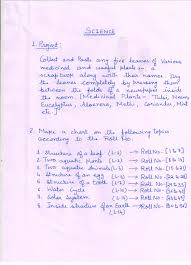 SCIENCE
1. Project:
Collect and Paste any five leaves of various
medicinal and useful plants in a
scrap book along with their names. Dry
the leaves completely by pressing them
between the folds of a newspaper inside
the room. [Medicinal Plants - Tulsi, Neem,
Eucalyptus, Aloevera, Methi, Coriander, Mint
etc.]
2. Make a chart on the following topics
according to the Roll No.
1. Structure of a leaf (L-3) → Roll No.
2. Two aquatic plants (L-3) → Roll No.
3. Two aquatic animals (L-3) → Roll No.
4. Structure of an egg → Roll No.
5. Structure of a tooth → Roll No.
6. Water Cycle → Roll No.
7. Solar System → Roll No.
8. Inside structure of an Earth (L-14) → Roll No.